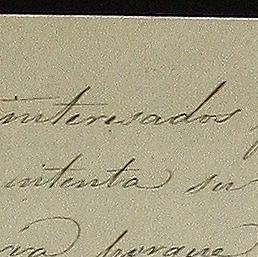 interesados
intenta su
porque